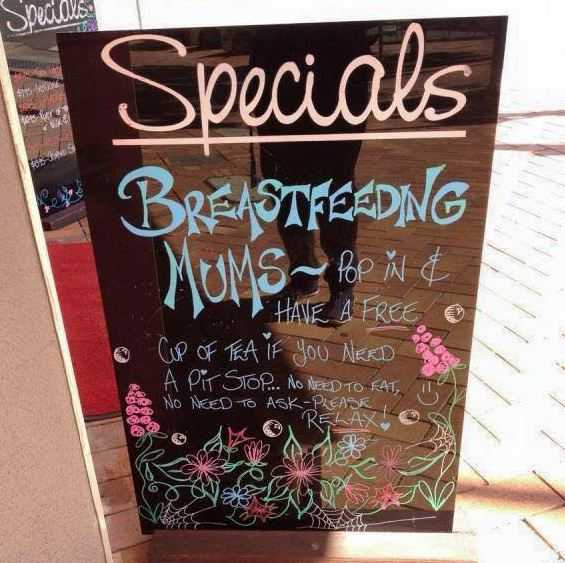 Specials
Specials
BREASTFEEDING
MUMS~ POP iN &
HAVE A FREE
CUP OF TEA iF YOU NEED
A PiT STOP... NO NEED TO EAT,
NO NEED TO ASK-PLEASE
RELAX!